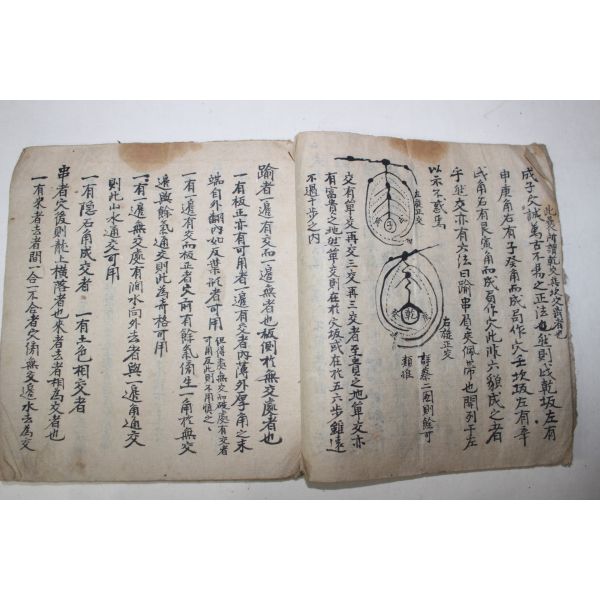 此是所謂乾交再坎交看者也
成子穴誠萬古不易之正法也然則戌乾坂左有
申庚角右有子癸角而成局作穴壬坎坂左有辛
戌角右有艮寅角而成局作穴此非六額成之者
乎然交亦有六法曰踰串局夾佩帶也開列于左
以示不惑焉
左旋正交
右旋正交
詳察二圖則餘可
類推
乾
交有單交再交三交再三交者子貴之地單交亦
有富貴之地然單交則在於穴坂或在於五六步雖遠
不過十步之內
踰者一邊有交而一邊無者也板倒於無交處者也
一有板正亦有可用者一邊有交者內薄外厚角之末
端自外翻內如反葉形者可用
但得處無交而破處有交者
可用反此則不用慎之
一有一邊有交而板正者穴前有餘氣傍生一角於無交
邊與餘氣通交則此為奇格可用
一有一邊無交處有澗水向外去者與一邊角通交
則此山水通交可用
一有隱石角成交者
一有土色相交者
串者穴後則龍上橫落者也來者去者相為交者也
一有來者去者間一合一不合者穴傍無交邊水去為交